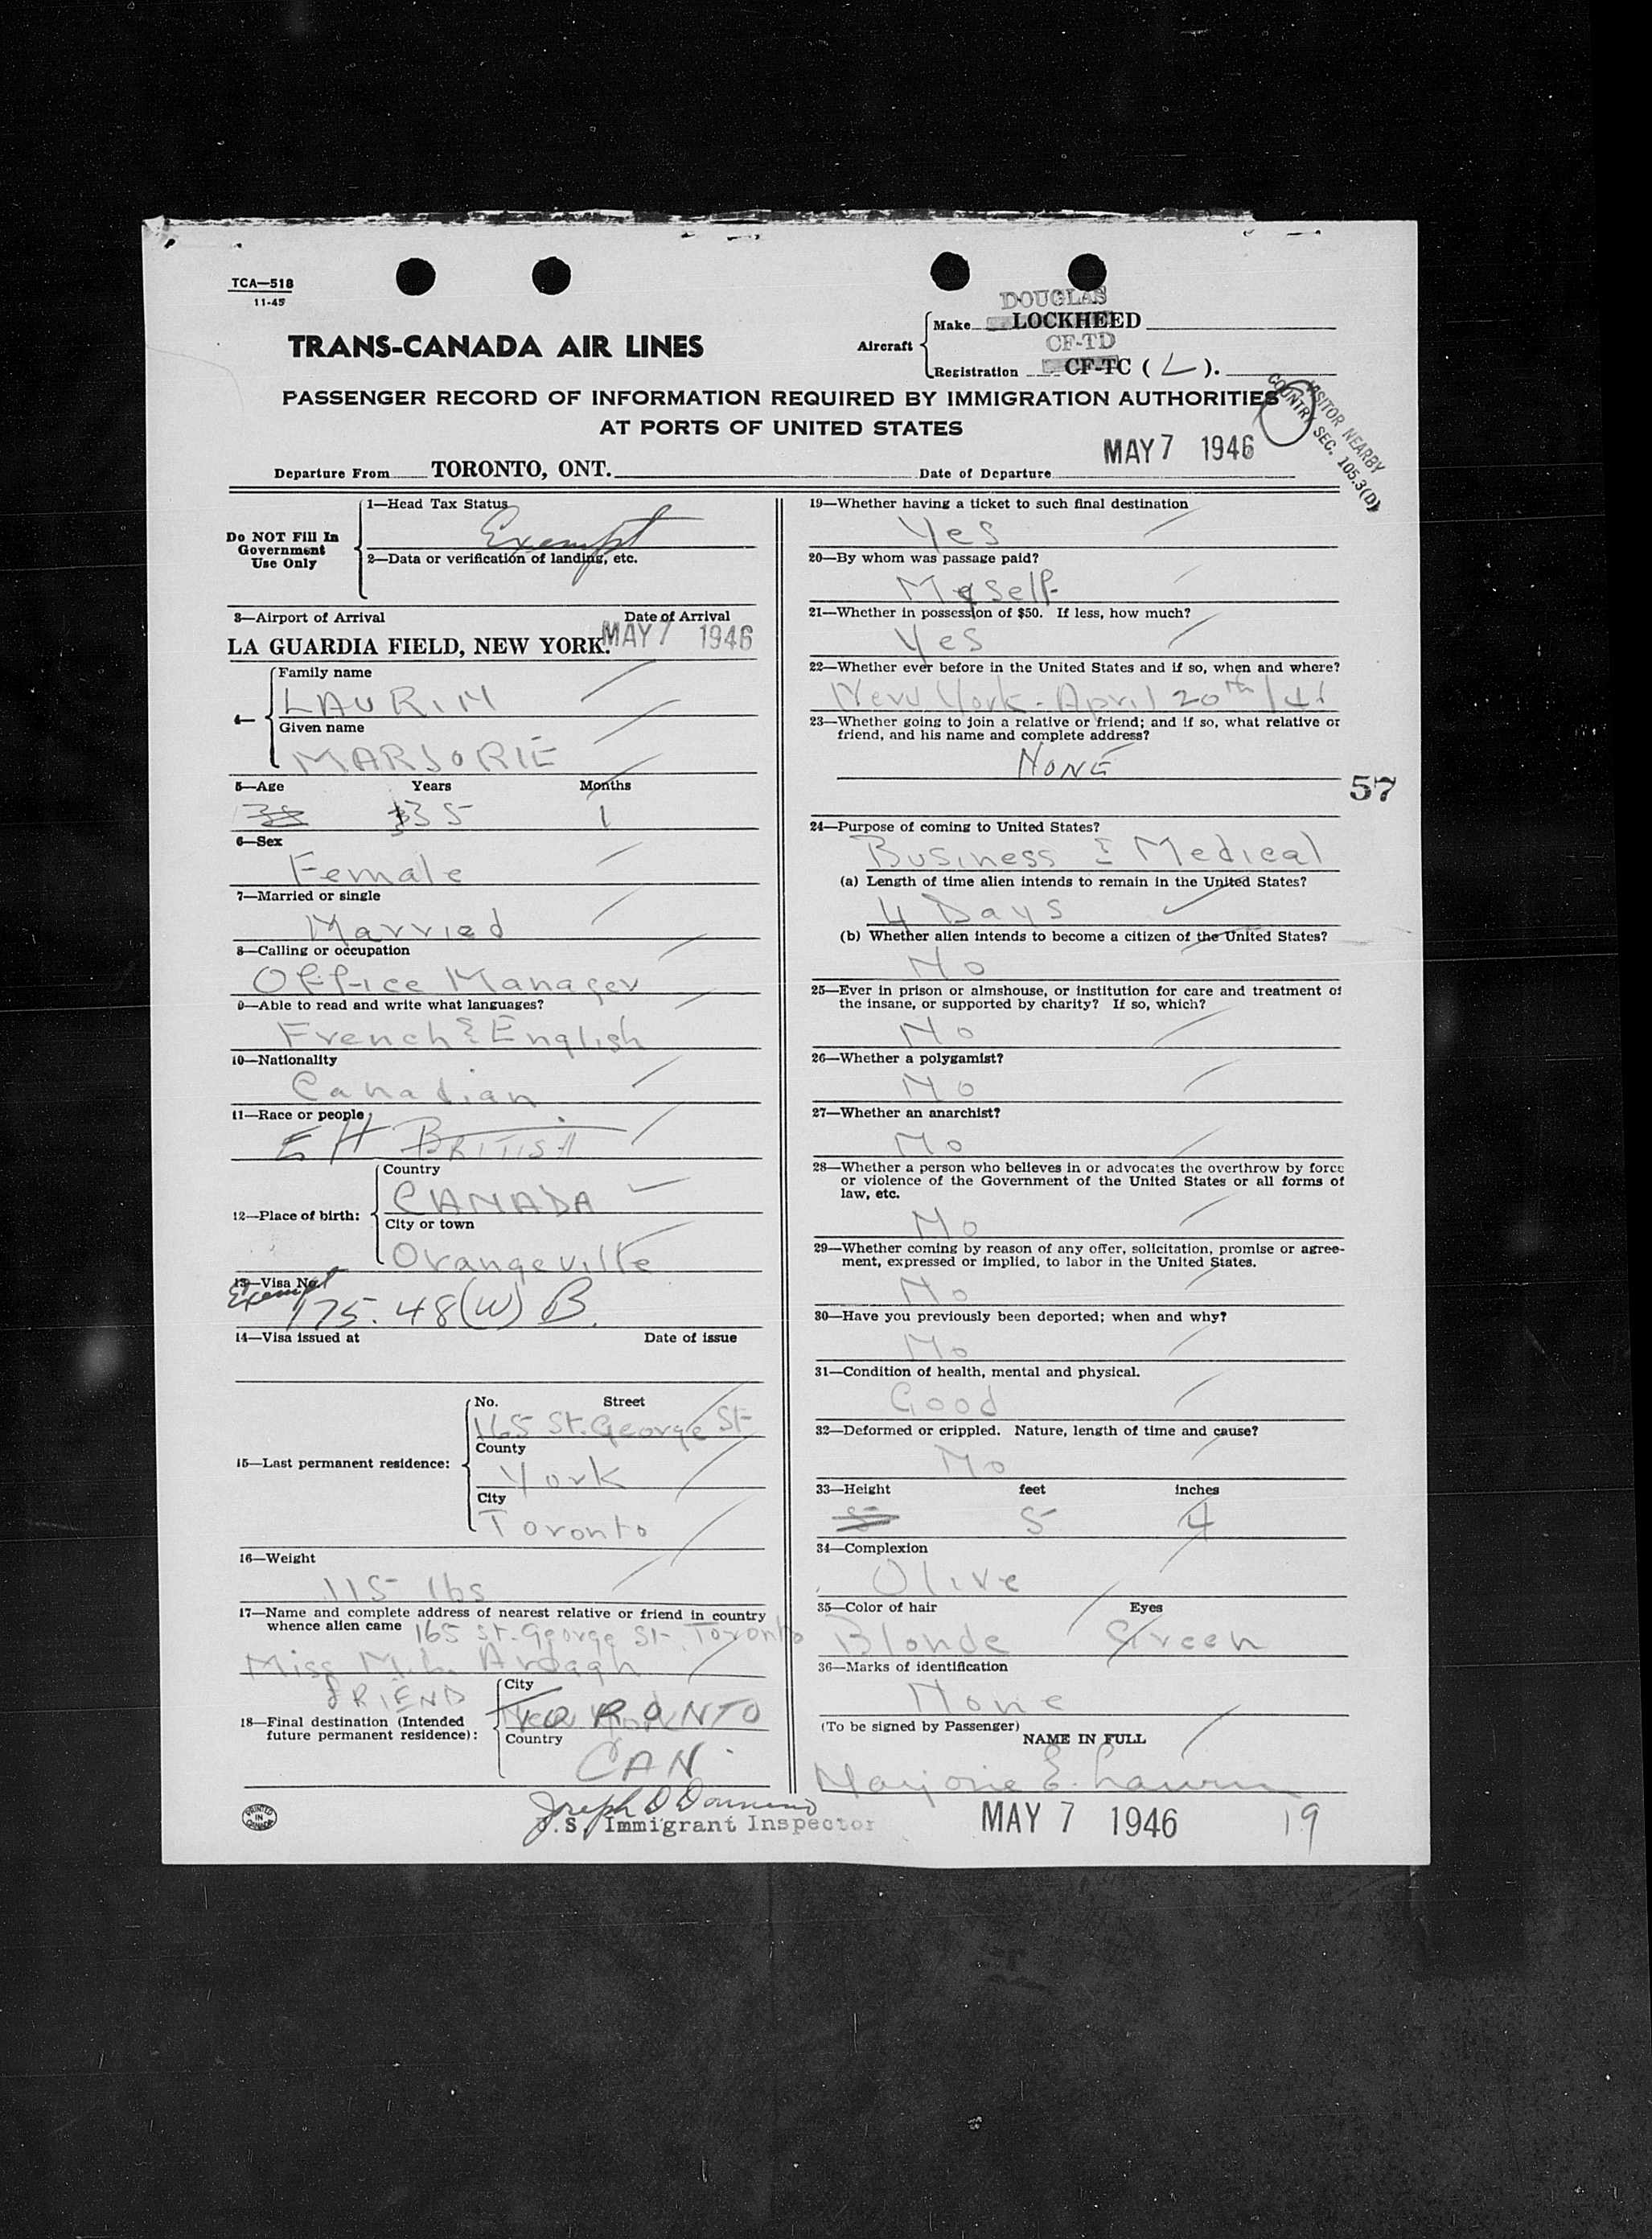 TCA—518
11-45
TRANS-CANADA AIR LINES
Aircraft
DOUGLAS
Make LOCKHEED
CF-TD
Registration CF-TC ( L ).
PASSENGER RECORD OF INFORMATION REQUIRED BY IMMIGRATION AUTHORITIES
AT PORTS OF UNITED STATES
VISITOR NEARBY
COUNTRY SEC. 105.3(D)
Departure From TORONTO, ONT. Date of Departure MAY 7 1946
Do NOT Fill In
Government
Use Only
1—Head Tax Status
Exempt
2—Data or verification of landing, etc.
3—Airport of Arrival Date of Arrival
LA GUARDIA FIELD, NEW YORK. MAY 7 1946
4—
Family name
LAURIN
Given name
MARJORIE
5—Age Years Months
35 1
6—Sex
Female
7—Married or single
Married
8—Calling or occupation
Office Manager
9—Able to read and write what languages?
French & English
10—Nationality
Canadian
11—Race or people
BRITISH
12—Place of birth:
Country
CANADA
City or town
Orangeville
13—Visa No.
Exempt
175.48(W) B.
14—Visa issued at Date of issue
15—Last permanent residence:
No. Street
165 St. George St
County
York
City
Toronto
16—Weight
115 lbs
17—Name and complete address of nearest relative or friend in country
whence alien came 165 St. George St. Toronto
Miss M. L. Ardagh
FRIEND
18—Final destination (Intended
future permanent residence):
City
TORONTO
Country
CAN.
PRINTED
IN
CANADA
U.S. Immigrant Inspector
19—Whether having a ticket to such final destination
Yes
20—By whom was passage paid?
Myself
21—Whether in possession of $50. If less, how much?
Yes
22—Whether ever before in the United States and if so, when and where?
New York - April 20th
23—Whether going to join a relative or friend; and if so, what relative or
friend, and his name and complete address?
NONE
57
24—Purpose of coming to United States?
Business & Medical
(a) Length of time alien intends to remain in the United States?
4 Days
(b) Whether alien intends to become a citizen of the United States?
No
25—Ever in prison or almshouse, or institution for care and treatment of
the insane, or supported by charity? If so, which?
No
26—Whether a polygamist?
No
27—Whether an anarchist?
No
28—Whether a person who believes in or advocates the overthrow by force
or violence of the Government of the United States or all forms of
law, etc.
No
29—Whether coming by reason of any offer, solicitation, promise or agree-
ment, expressed or implied, to labor in the United States.
No
30—Have you previously been deported; when and why?
No
31—Condition of health, mental and physical.
Good
32—Deformed or crippled. Nature, length of time and cause?
No
33—Height feet inches
5 4
34—Complexion
Olive
35—Color of hair Eyes
Blonde Green
36—Marks of identification
None
(To be signed by Passenger)
NAME IN FULL
Marjorie E. Laurin
MAY 7 1946 19